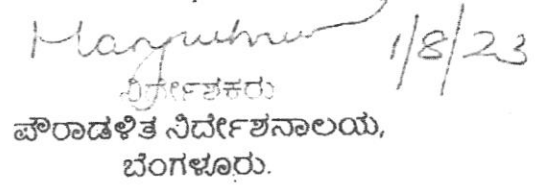 1/8/23
ನಿರ್ದೇಶಕರು
ಪೌರಾಡಳಿತ ನಿರ್ದೇಶನಾಲಯ,
ಬೆಂಗಳೂರು.